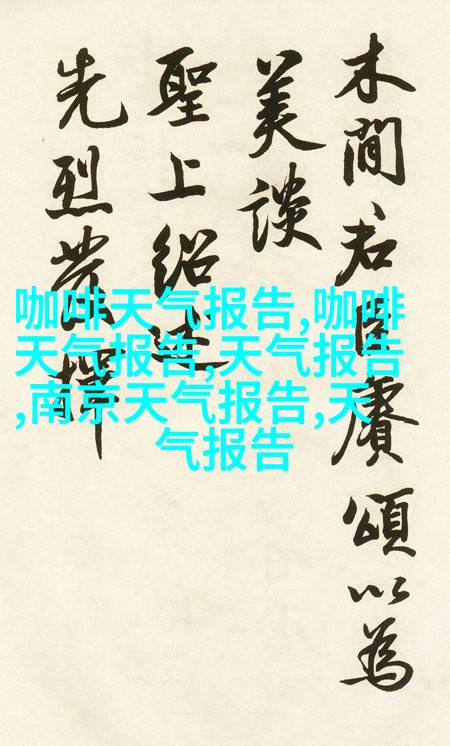 木間君臣賡頌以為
美談
聖上紹述
先烈發揮
咖啡天气报告,咖啡
天气报告,天气报告
,南京天气报告,天
气报告